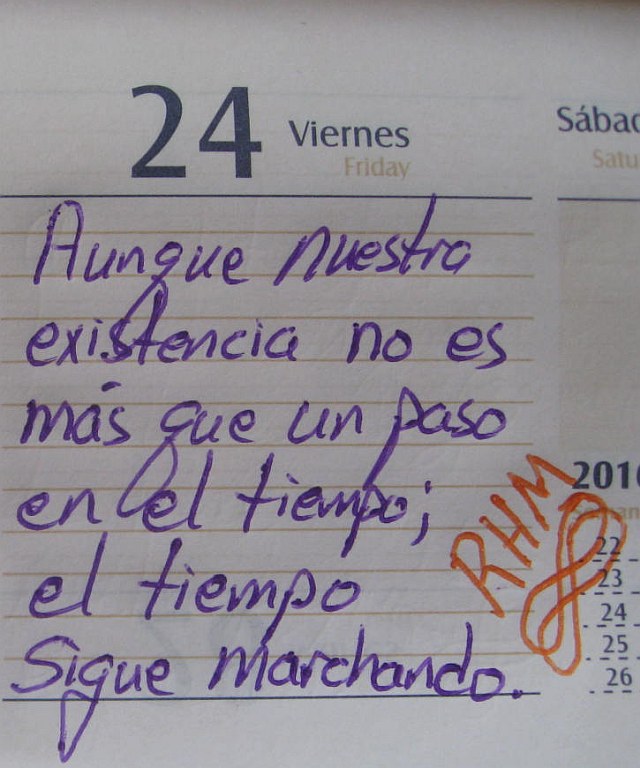 24 Viernes
Friday
Sábad
Satu
Aunque nuestra
existencia no es
más que un paso
en el tiempo;
el tiempo
Sigue marchando.
RHM
2010
22
23
24
25
26